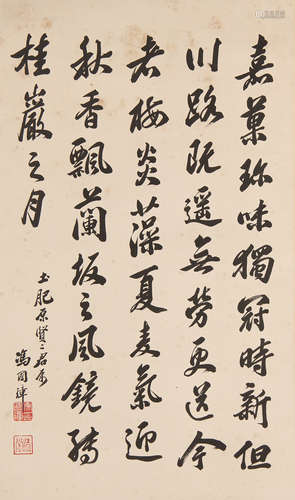 嘉菓珍味獨冠時新但
川路既遥無勞更送今
者梅炎藻夏麦氣迎
秋香飄蘭坂之風鏡瑒
桂巖之月
土肥原賢二君属
馮國璋